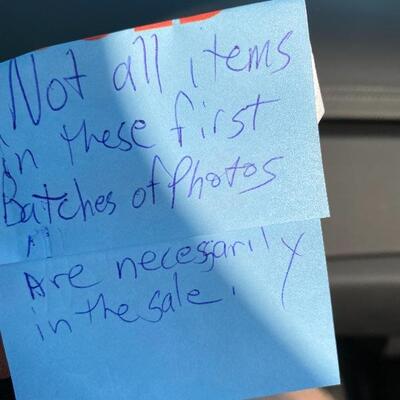 Not all items
in these first
Batches of Photos
Are necessarily
in the sale.